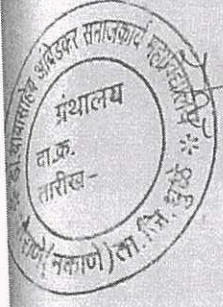 डॉ. बाबासाहेब आंबेडकर समाजकार्य महाविद्यालय
ग्रंथालय
दा.क्र.
तारीख -
(नकाणे) ता. जि. धुळे